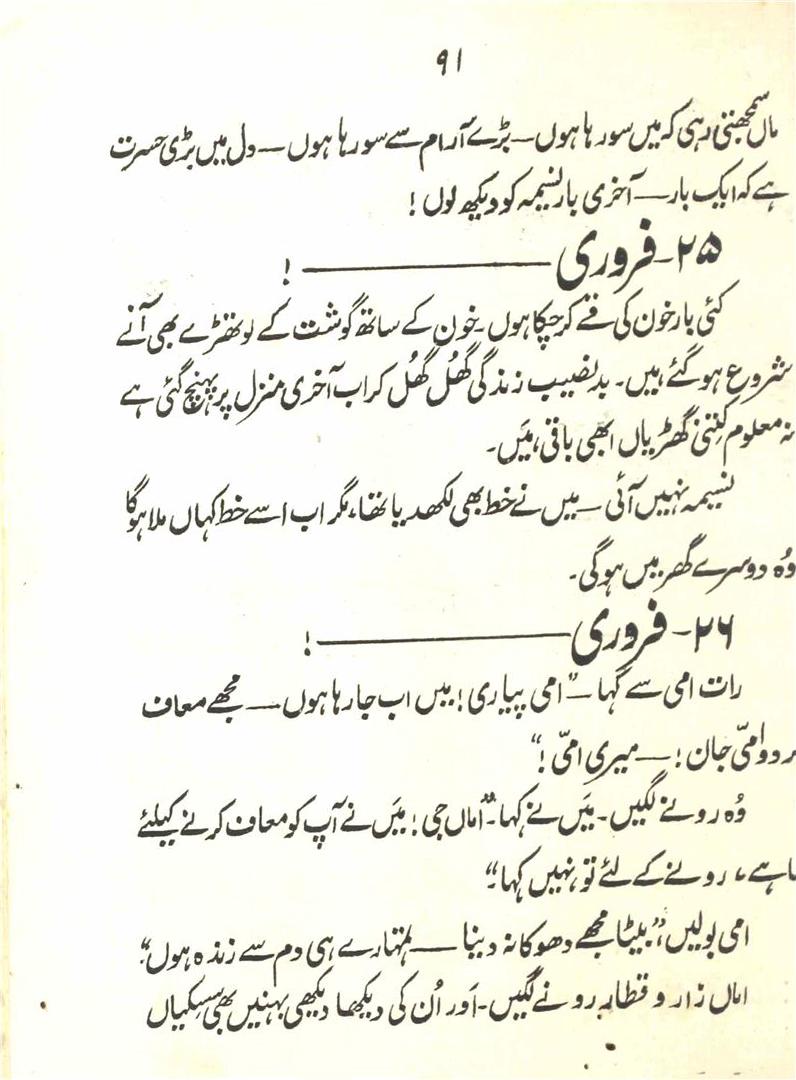 ۹۱
ماں سمجھتی رہی کہ میں سو رہا ہوں — بڑے آرام سے سو رہا ہوں — دل میں بڑی حسرت
ہے کہ ایک بار — آخری بار نسیمہ کو دیکھ لوں !
۲۵ - فروری ——— !
کئی بار خون کی قے کر چکا ہوں ۔ خون کے ساتھ گوشت کے لوتھڑے بھی آنے
شروع ہو گئے ہیں ۔ بدنصیب زندگی گھُل گھُل کر اب آخری منزل پر پہنچ گئی ہے
نہ معلوم کتنی گھڑیاں ابھی باقی ہیَں ۔
نسیمہ نہیں آئی — میں نے خط بھی لکھدیا تھا، مگر اب اسے خط کہاں ملا ہوگا
وُہ دوسرے گھر میں ہو گی ۔
۲۶ - فروری ——— !
رات امی سے کہا — ”امی پیاری ! میں اب جا رہا ہوں — مجھے معاف
ر دو امیّ جان ! — میری امیّ !“
وُہ رونے لگیں ۔ میَں نے کہا ۔ ”اماں جی ! میَں نے آپ کو معاف کرنے کیلئے
ہا ہے ، رونے کے لئے تو نہیں کہا ۔“
امی بولیں ”بیٹا مجھے دھوکا نہ دینا — تمہارے ہی دم سے زندہ ہوں ۔“
اماں زار و قطار رونے لگیں ۔ اَور اُن کی دیکھا دیکھی بہنیں بھی سسکیاں